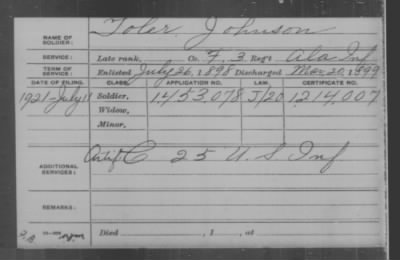 NAME OF SOLDIER: Toler, Johnson
SERVICE: Late rank, Co. F, 3 Reg't Ala Inf
TERM OF SERVICE: Enlisted July 26, 1898 Discharged Mar. 20, 1899
DATE OF FILING. CLASS. APPLICATION NO. LAW. CERTIFICATE NO.
1921-July 11 Soldier, 1,453,078 J/20 1,214,007
Widow,
Minor,
ADDITIONAL SERVICES: C 25 U.S. Inf
REMARKS:
Died , 1 , at